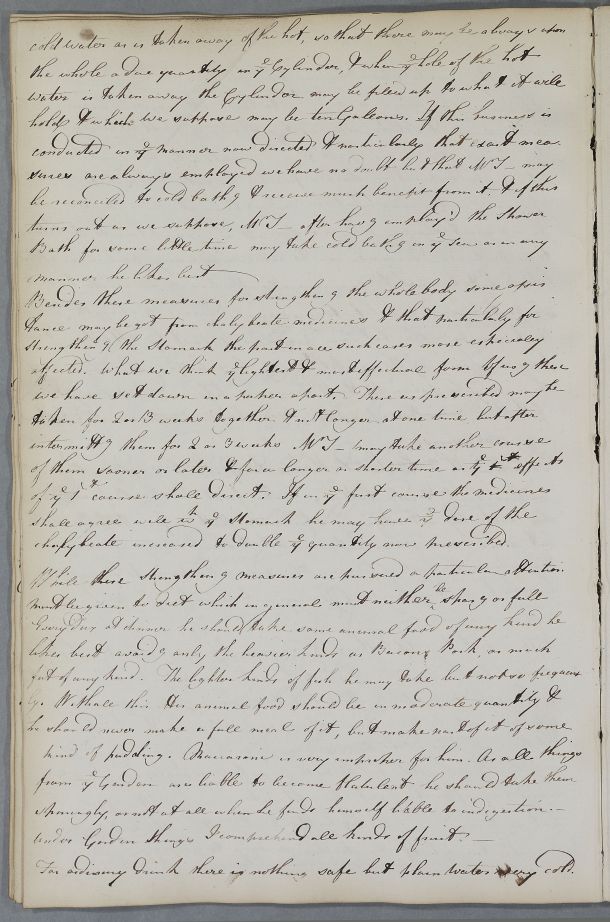 cold water as is taken away of the hot, so that there may be always upon
the whole a due quantity in yͤ Cylinder, & when yͤ hole of the hot
water is taken away the Cylinder may be filled up to what it will
hold & which we suppose may be ten Galeons. If this business is
conducted in yͤ manner now directed & particularly that exact mea-
sures are always employed we have no doubt but that Mr J— may
be reconciled to cold bath͠g & receive much benefit from it & if this
turns out as we suppose, Mr J— after hav͠g employ'd the Shower
Bath for some little time may take cold bath͠g in yͤ Sea or in any
manner he likes best
Besides these measures for strengthen͠g the whole body some assis
tance may be got from chalybeate medicines & that particularly for
strengthen͠g the Stomach the part in ace such cases more especialey
affected. What we think yͤ lightest & most effectual form of us͠g these
we have set down in a paper apart. These as prescribed may be
taken for 2 or 3 weeks together & not longer at one time but after
intermitt͠g them for 2 or 3 weeks Mr J— may take another course
of them sooner or later & for a longer or shorter time as yͤ effects
of yͤ 1st course shall direct. If in yͤ first course the medicines
shall agree well wth yͤ Stomach he may have yͤ dose of the
chalybeate increased to double yͤ quantity now prescribed.
While these strengthen͠g measures are pursued a particular attention
must be given to diet which in general must neither be spar͠g or full
Every day at dinner he should take some animal food of any kind he
likes best avoid͠g only the heavier kinds as Bacon, Pork, or much
fat of any kind. The lighter kinds of fish he may take but not so frequent
ly. Withall this His animal food should be in moderate quantity &
he should never make a full meal of it, but make part of it of some
kind of pudding. Maccaroni is very improper for him. As all things
from yͤ Garden are liable to become flatulent he should take them
sparingly, or not at all when he finds himself liable to indigestion.—
under Garden things I comprehend all kinds of fruit.—
For ordinary drink there is nothing safe but plain water very cold.